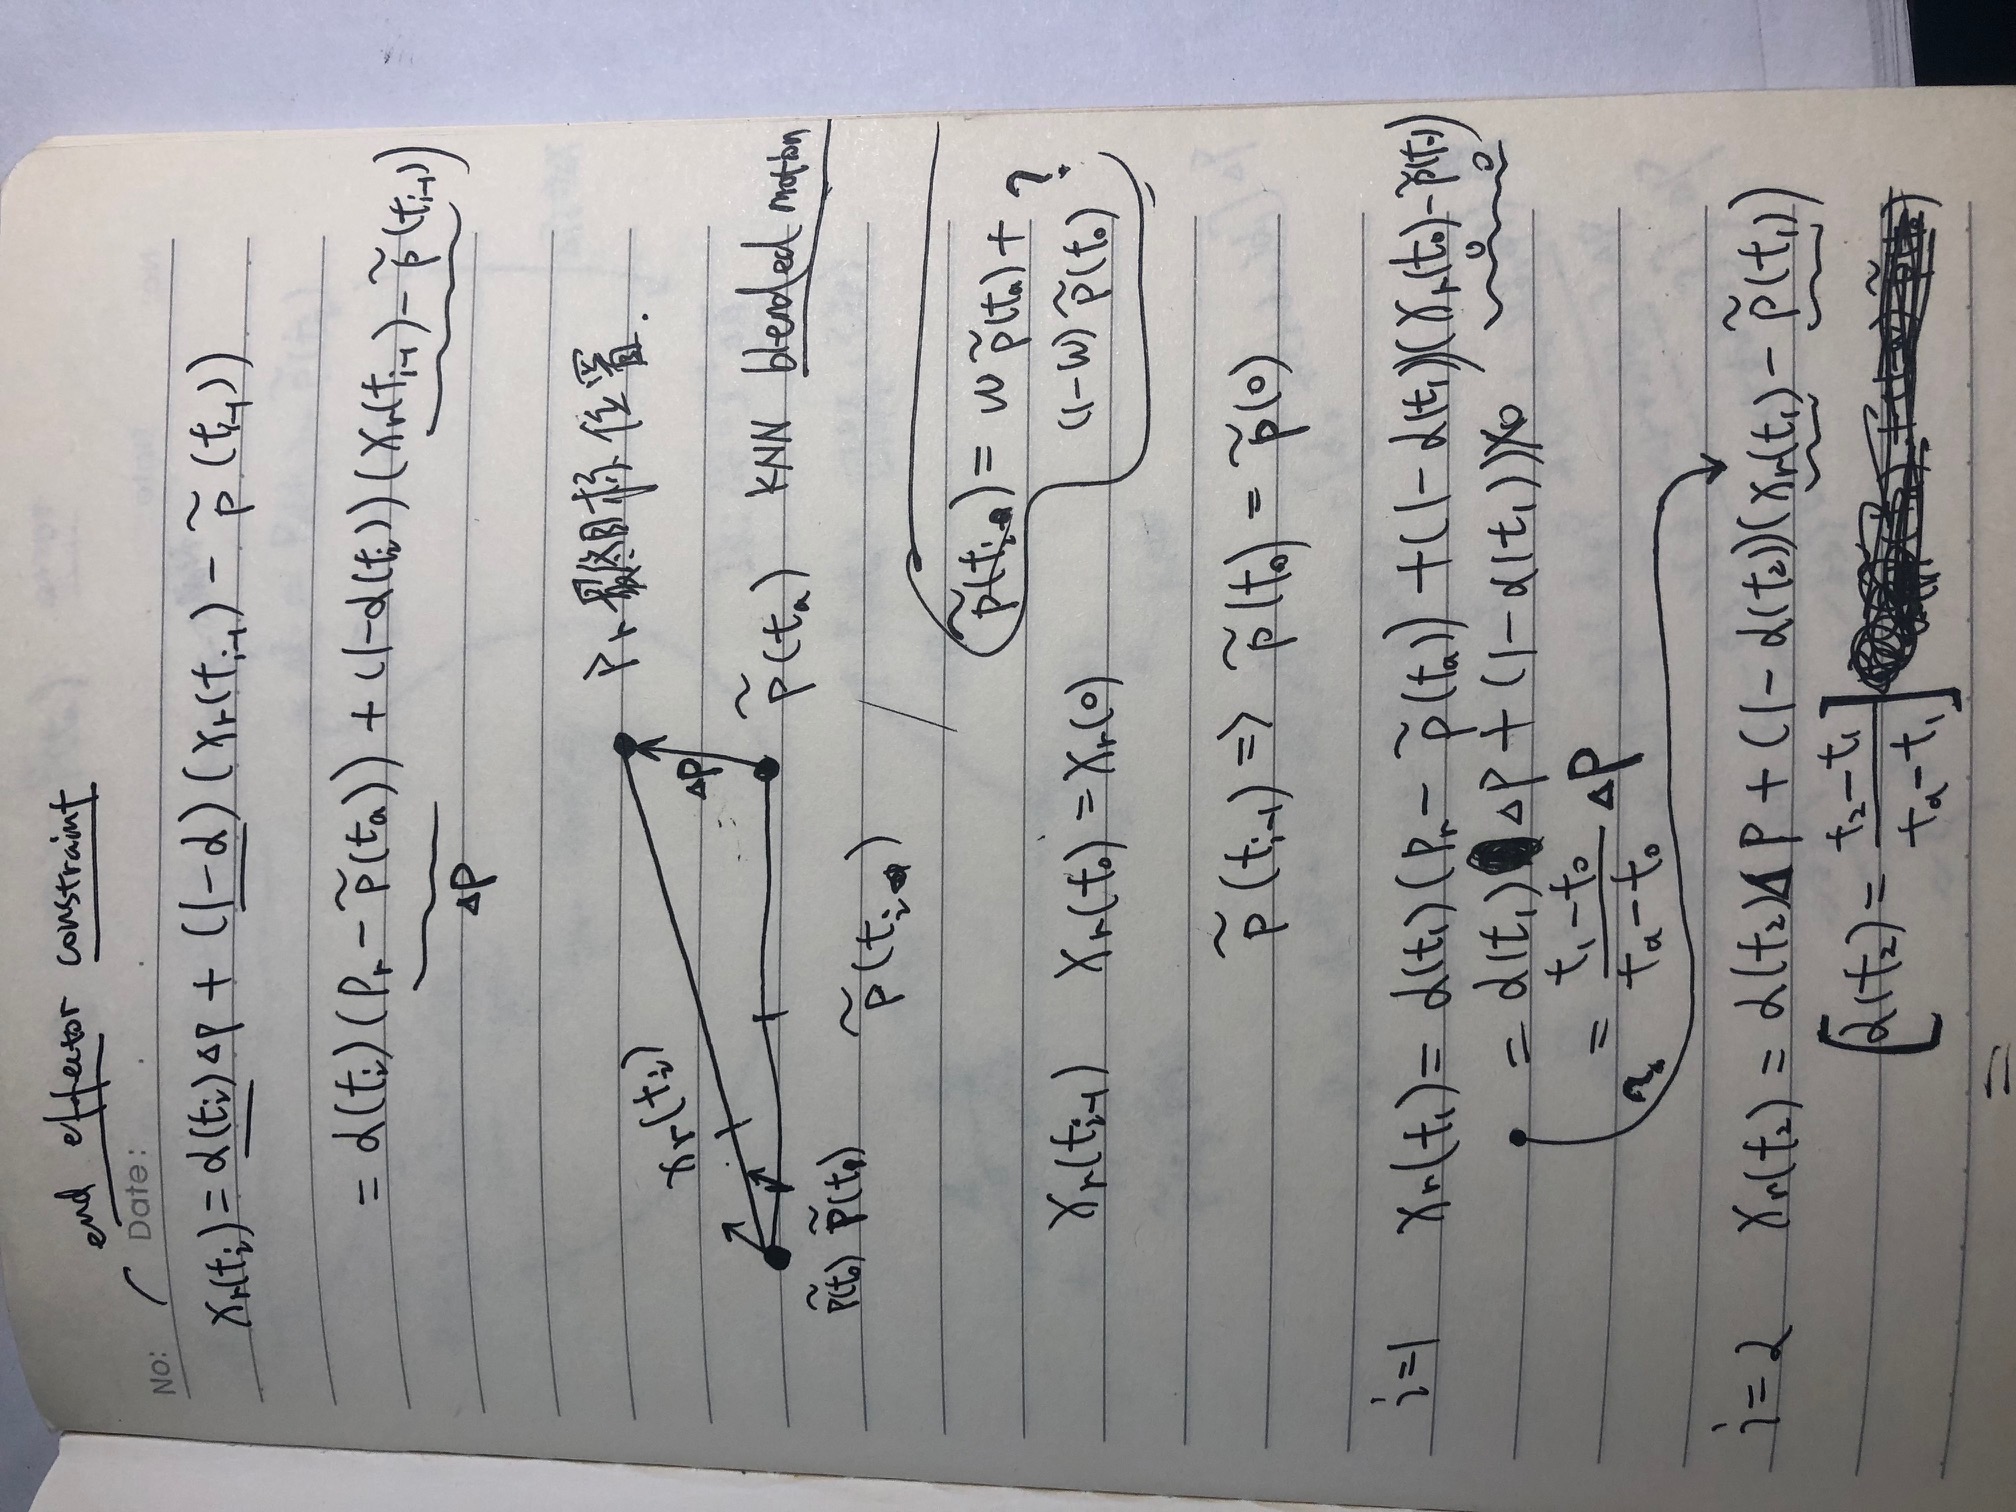 end effector constraint
No: Date:
xr(ti) = α(ti)ΔP + (1-α)(xr(ti-1) - p̃(ti-1))
= α(ti)(Pr - p̃(ta)) + (1-α(ti))(xr(ti-1) - p̃(ti-1))
ΔP
Pr 最终目标位置.
xr(ti)
ΔP
p̃(ta) KNN blended motion
p̃(t0) p̃(t1)
p̃(ti)
p̃(ti) = w p̃(ta) +
(1-w) p̃(t0) ?
xr(ti-1) xr(t0) = xr(0)
p̃(ti-1) => p̃(t0) = p̃(0)
i=1 xr(t1) = α(t1)(Pr - p̃(ta)) + (1-α(t1))(xr(t0) - p̃(t0))
0 0
= α(t1) ΔP + (1-α(t1))×0
= (t1-t0)/(ta-t0) ΔP
?
i=2 xr(t2) = α(t2)ΔP + (1-α(t2))(xr(t1) - p̃(t1))
[α(t2) = (t2-t1)/(ta-t1)]
=